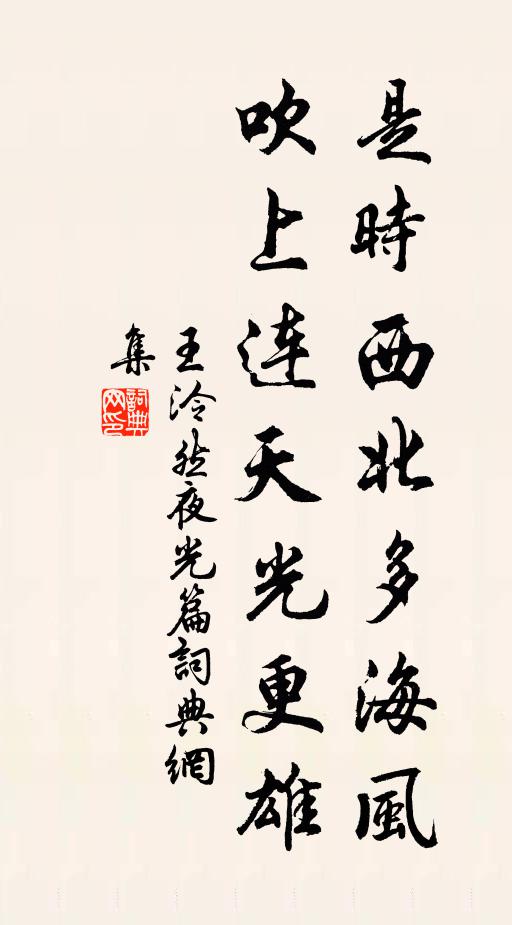 是時西北多海風
吹上連天光更雄
王泠然夜光篇詞典網
集
詞典
网印